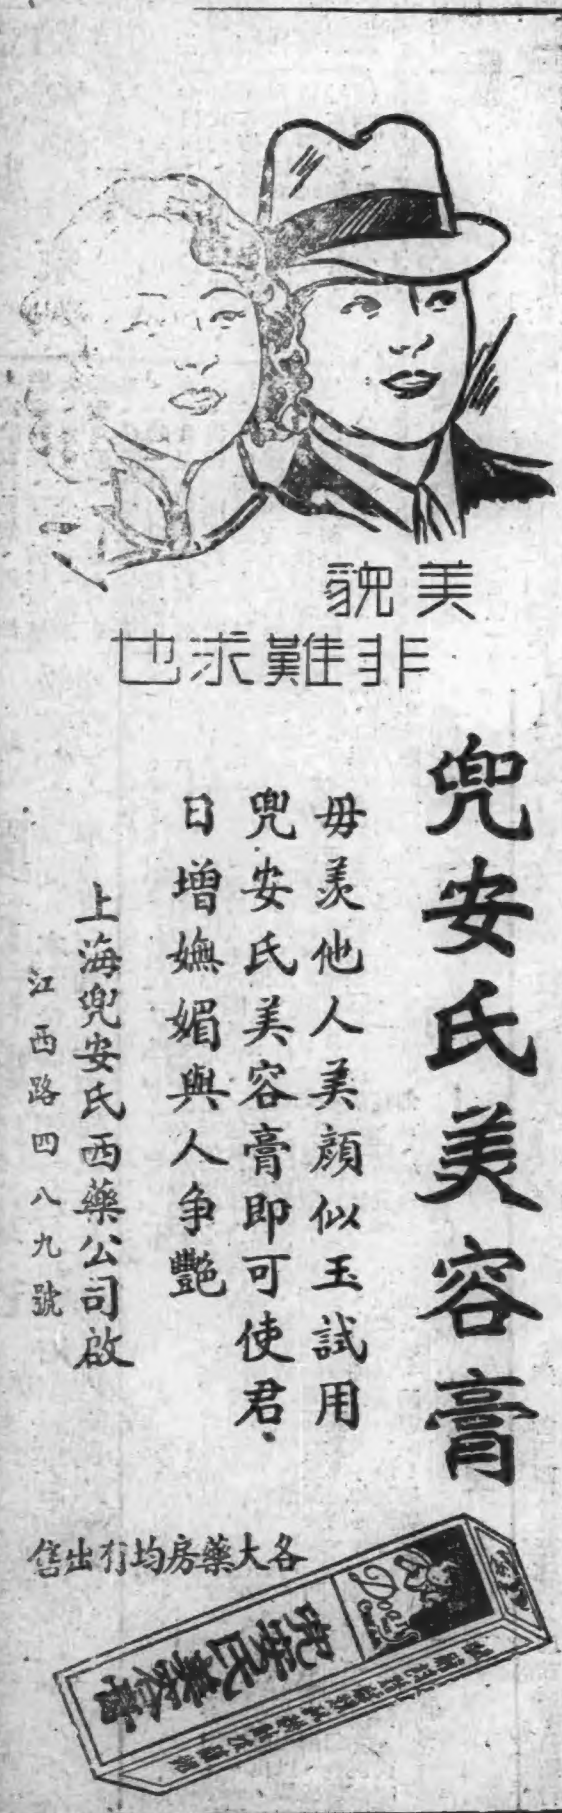 美貌
非難求也
兜安氏美容膏
毋羡他人美顔似玉試用
兜安氏美容膏即可使君
日增嫵媚與人爭艷
上海兜安氏西藥公司啟
江西路四八九號
各大藥房均有出售
Doan's
兜安氏美容膏